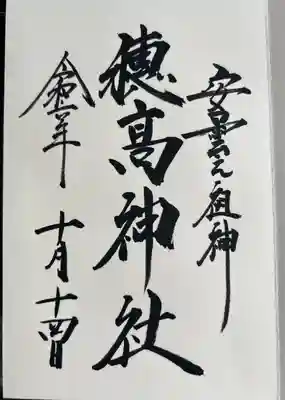 安曇之祖神
穂高神社
令和 年 十月十四日